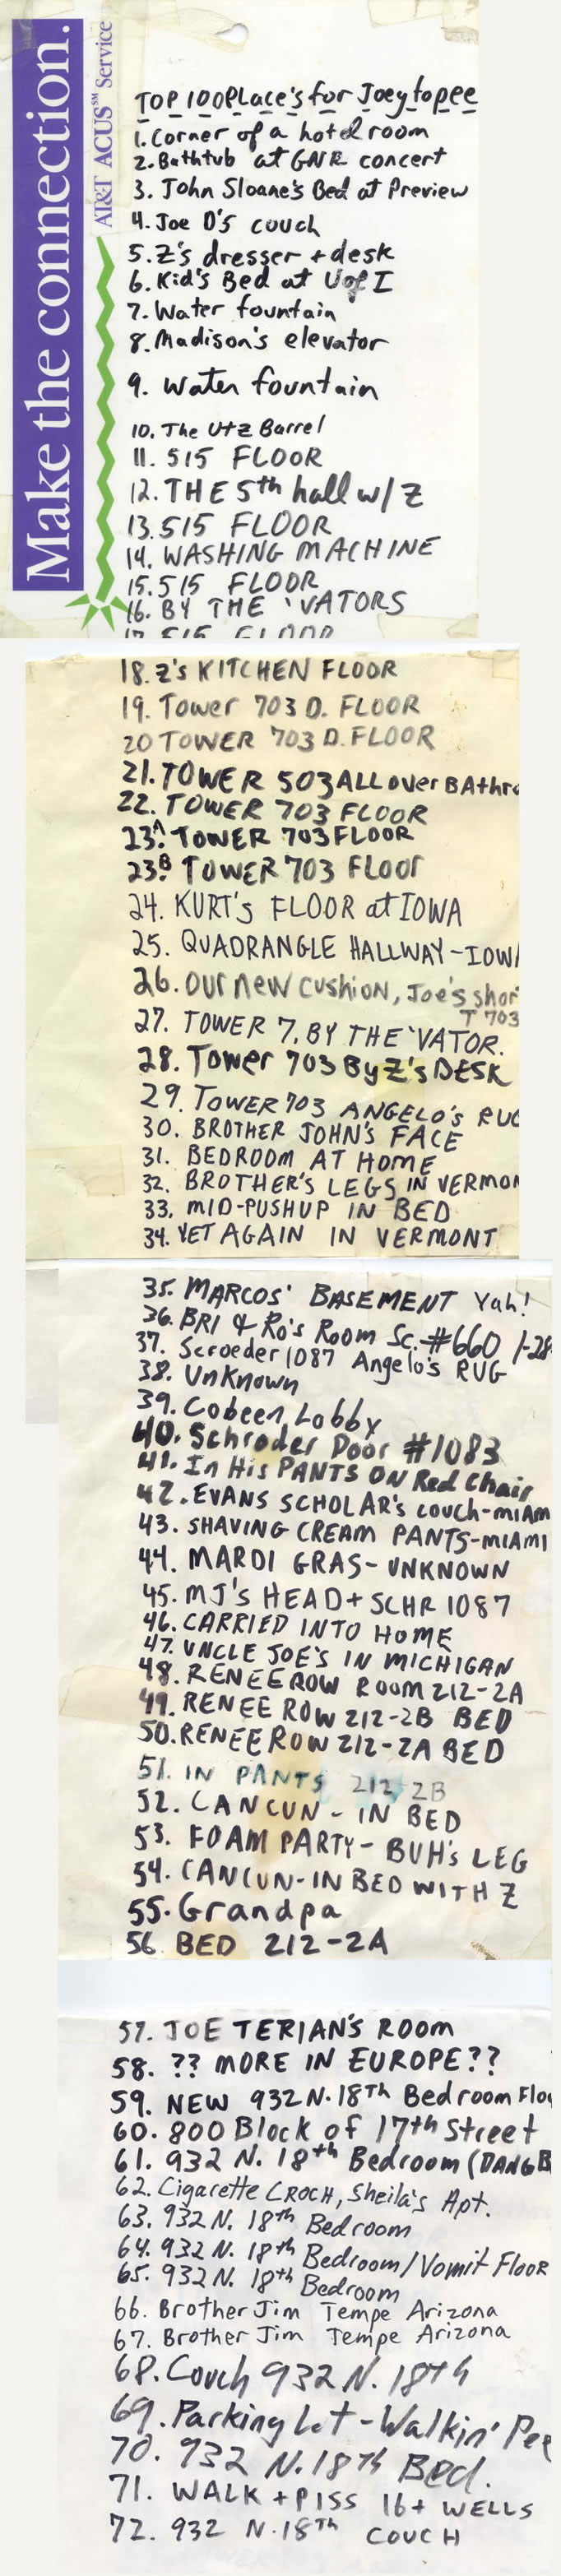 Make the connection.
AT&T ACUS℠ Service
TOP 100 PLace's for Joey to pee
1. Corner of a hotel room
2. Bathtub at GNR concert
3. John Sloane's Bed at Preview
4. Joe D'S couch
5. Z's dresser + desk
6. Kid's Bed at U of I
7. Water fountain
8. Madison's elevator
9. Water fountain
10. The Utz Barrel
11. 515 FLOOR
12. THE 5th hall w/ Z
13. 515 FLOOR
14. WASHING MACHINE
15. 515 FLOOR
16. BY THE 'VATORS
17. 515 FLOOR
18. Z's KITCHEN FLOOR
19. Tower 703 D. FLOOR
20 TOWER 703 D. FLOOR
21. TOWER 503 ALL over BAthro
22. TOWER 703 FLOOR
23A. TOWER 703 FLOOR
23B. TOWER 703 Floor
24. KURT's FLOOR at IOWA
25. QUADRANGLE HALLWAY - IOW
26. our new cushion, Joe's shor
T 703
27. TOWER 7, BY THE 'VATOR.
28. Tower 703 By Z's DESK
29. TOWER 703 ANGELO'S RUG
30. BROTHER JOHN'S FACE
31. BEDROOM AT HOME
32. BROTHER'S LEGS IN VERMON
33. MID-PUSHUP IN BED
34. YET AGAIN IN VERMONT
35. MARCOS' BASEMENT Yah!
36. BRI & Ro's Room Sc. #660 1-28
37. Scroeder 1087 Angelo's RUG
38. Unknown
39. Cobeen Lobby
40. Schroder Door #1083
41. In His PANTS ON Red Chair
42. EVANS SCHOLAR's couch-MIAM
43. SHAVING CREAM PANTS-MIAMI
44. MARDI GRAS - UNKNOWN
45. MJ's HEAD + SCHR 1087
46. CARRIED INTO HOME
47. UNCLE JOE'S IN MICHIGAN
48. RENEE ROW ROOM 212-2A
49. RENEE ROW 212-2B BED
50. RENEE ROW 212-2A BED
51. IN PANTS 212-2B
52. CANCUN - IN BED
53. FOAM PARTY - BUH's LEG
54. CANCUN - IN BED WITH Z
55. Grandpa
56. BED 212-2A
57. JOE TERIAN'S ROOM
58. ?? MORE IN EUROPE??
59. NEW 932 N. 18Th Bedroom Floo
60. 800 Block of 17th Street
61. 932 N. 18th Bedroom (DANG B
62. Cigarette CROCH, Sheila's Apt.
63. 932 N. 18th Bedroom
64. 932 N. 18th Bedroom/Vomit FLOOR
65. 932 N. 18th Bedroom
66. Brother Jim Tempe Arizona
67. Brother Jim Tempe Arizona
68. Couch 932 N. 18th
69. Parking Lot - Walkin' Pee
70. 932 N. 18Th Bed.
71. WALK + PISS 16 + WELLS
72. 932 N. 18Th COUCH